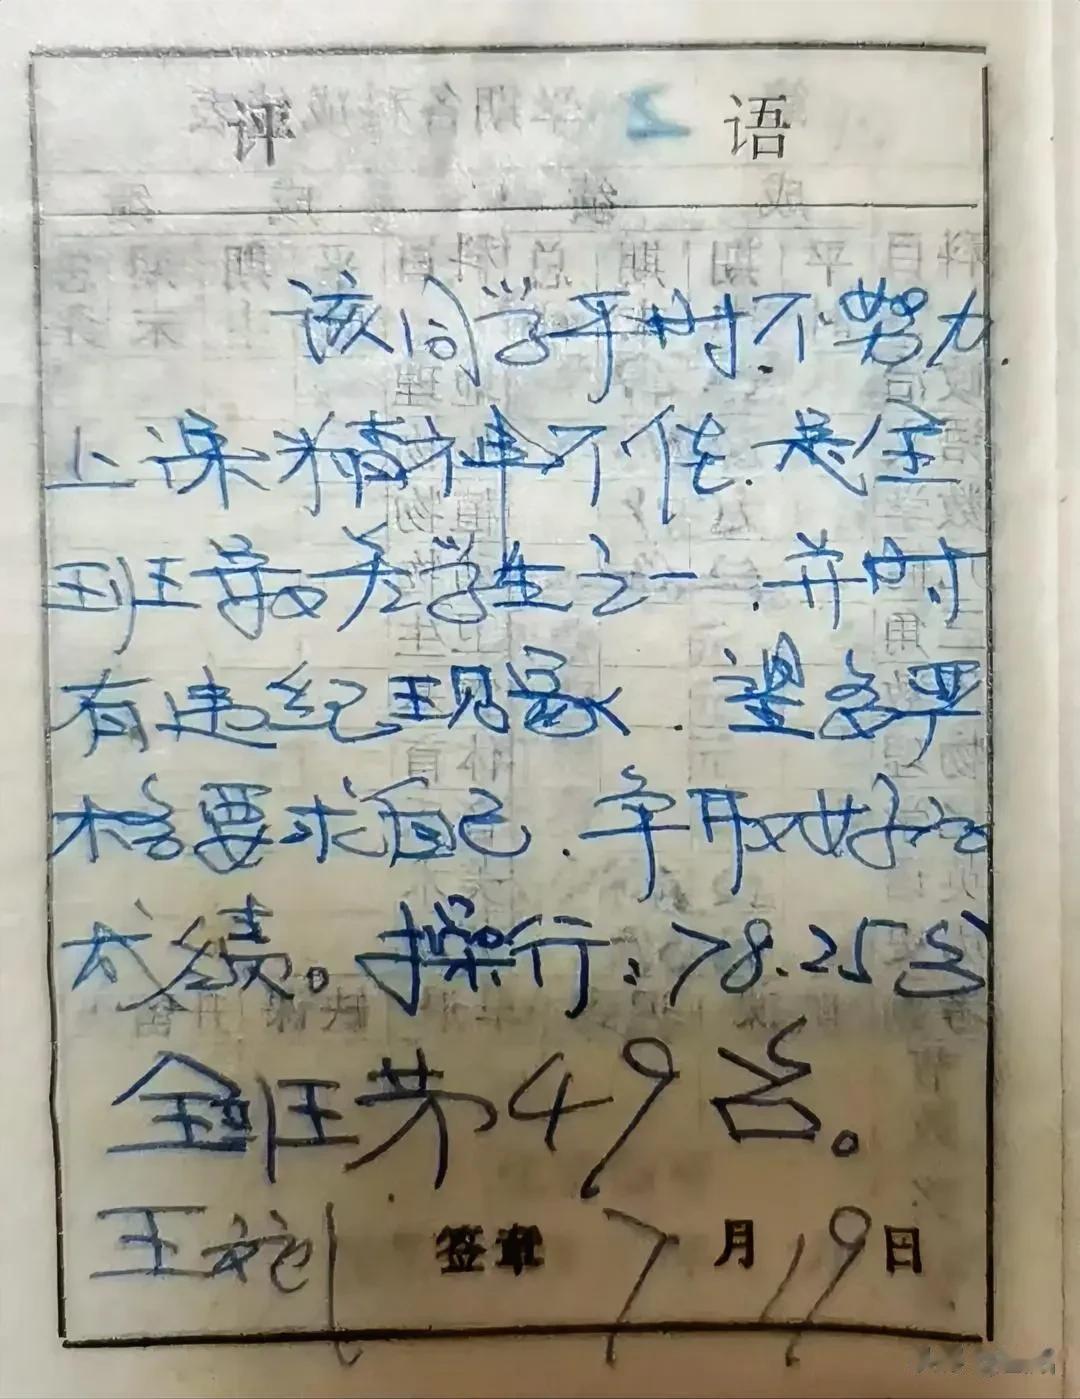 评 语
该同学平时不努力.
上课精神不佳.是全
班最差学生之一.并时
有违纪现象.望多严
格要求自己.争取好的
成绩。操行:78.25分
全班第49名。
王 签章 7月19日